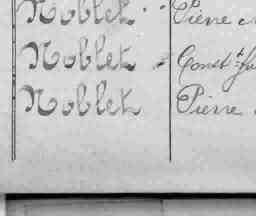 Noblet Pierre
Noblet Const
Noblet Pierre